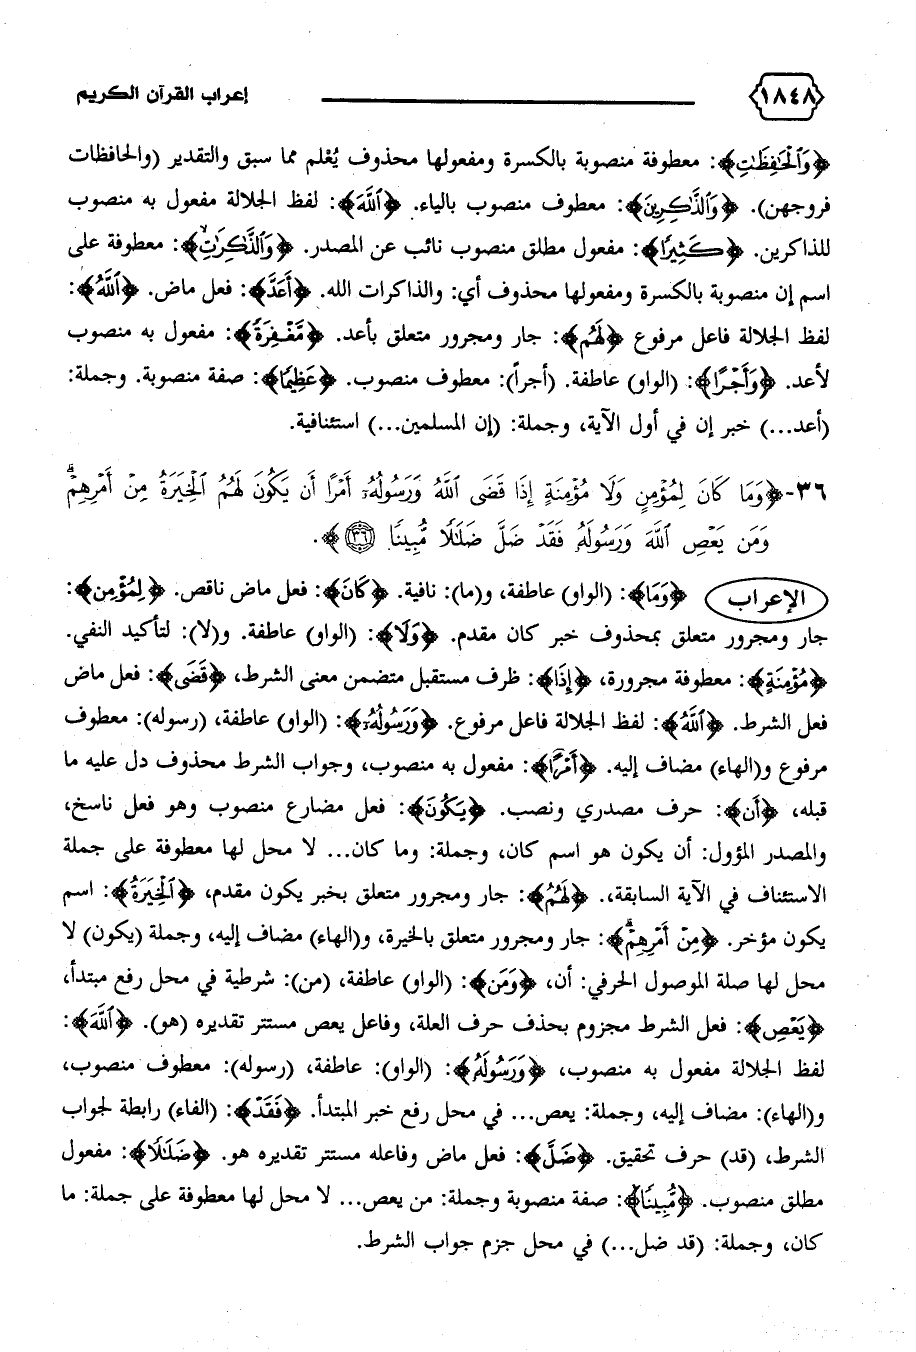 ١٨٤٨ إعراب القرآن الكريم
﴿وَٱلْحَٰفِظَٰتِ﴾: معطوفة منصوبة بالكسرة ومفعولها محذوف يُعْلم مما سبق والتقدير (والحافظات
فروجهن). ﴿وَٱلذَّٰكِرِينَ﴾: معطوف منصوب بالياء. ﴿ٱللَّهَ﴾: لفظ الجلالة مفعول به منصوب
للذاكرين. ﴿كَثِيرًا﴾: مفعول مطلق منصوب نائب عن المصدر. ﴿وَٱلذَّٰكِرَٰتِ﴾: معطوفة على
اسم إن منصوبة بالكسرة ومفعولها محذوف أي: والذاكرات الله. ﴿أَعَدَّ﴾: فعل ماض. ﴿ٱللَّهُ﴾:
لفظ الجلالة فاعل مرفوع ﴿لَهُم﴾: جار ومجرور متعلق بأعد. ﴿مَّغْفِرَةً﴾: مفعول به منصوب
لأعد. ﴿وَأَجْرًا﴾: (الواو) عاطفة. (أجراً): معطوف منصوب. ﴿عَظِيمًا﴾: صفة منصوبة. وجملة:
(أعد...) خبر إن في أول الآية، وجملة: (إن المسلمين...) استئنافية.
٣٦-﴿وَمَا كَانَ لِمُؤْمِنٍ وَلَا مُؤْمِنَةٍ إِذَا قَضَى ٱللَّهُ وَرَسُولُهُۥٓ أَمْرًا أَن يَكُونَ لَهُمُ ٱلْخِيَرَةُ مِنْ أَمْرِهِمْ ۗ
وَمَن يَعْصِ ٱللَّهَ وَرَسُولَهُۥ فَقَدْ ضَلَّ ضَلَٰلًا مُّبِينًا ﴿٣٦﴾﴾.
الإعراب ﴿وَمَا﴾: (الواو) عاطفة، و(ما): نافية. ﴿كَانَ﴾: فعل ماض ناقص. ﴿لِمُؤْمِن﴾:
جار ومجرور متعلق بمحذوف خبر كان مقدم. ﴿وَلَا﴾: (الواو) عاطفة. و(لا): لتأكيد النفي.
﴿مُؤْمِنَةٍ﴾: معطوفة مجرورة، ﴿إِذَا﴾: ظرف مستقبل متضمن معنى الشرط، ﴿قَضَى﴾: فعل ماض
فعل الشرط. ﴿ٱللَّهُ﴾: لفظ الجلالة فاعل مرفوع. ﴿وَرَسُولُهُۥٓ﴾: (الواو) عاطفة، (رسوله): معطوف
مرفوع و(الهاء) مضاف إليه. ﴿أَمْرًا﴾: مفعول به منصوب، وجواب الشرط محذوف دل عليه ما
قبله، ﴿أَن﴾: حرف مصدري ونصب. ﴿يَكُونَ﴾: فعل مضارع منصوب وهو فعل ناسخ،
والمصدر المؤول: أن يكون هو اسم كان، وجملة: وما كان... لا محل لها معطوفة على جملة
الاستئناف في الآية السابقة،. ﴿لَهُمُ﴾: جار ومجرور متعلق بخبر يكون مقدم، ﴿ٱلْخِيَرَةُ﴾: اسم
يكون مؤخر. ﴿مِنْ أَمْرِهِمْ ۗ﴾: جار ومجرور متعلق بالخيرة، و(الهاء) مضاف إليه، وجملة (يكون) لا
محل لها صلة الموصول الحرفي: أن، ﴿وَمَن﴾: (الواو) عاطفة، (من): شرطية في محل رفع مبتدأ،
﴿يَعْصِ﴾: فعل الشرط مجزوم بحذف حرف العلة، وفاعل يعص مستتر تقديره (هو). ﴿ٱللَّهَ﴾:
لفظ الجلالة مفعول به منصوب، ﴿وَرَسُولَهُۥ﴾: (الواو): عاطفة، (رسوله): معطوف منصوب،
و(الهاء): مضاف إليه، وجملة: يعص... في محل رفع خبر المبتدأ. ﴿فَقَدْ﴾: (الفاء) رابطة لجواب
الشرط، (قد) حرف تحقيق. ﴿ضَلَّ﴾: فعل ماض وفاعله مستتر تقديره هو. ﴿ضَلَٰلًا﴾: مفعول
مطلق منصوب. ﴿مُّبِينًا﴾: صفة منصوبة وجملة: من يعص... لا محل لها معطوفة على جملة: ما
كان، وجملة: (قد ضل...) في محل جزم جواب الشرط.